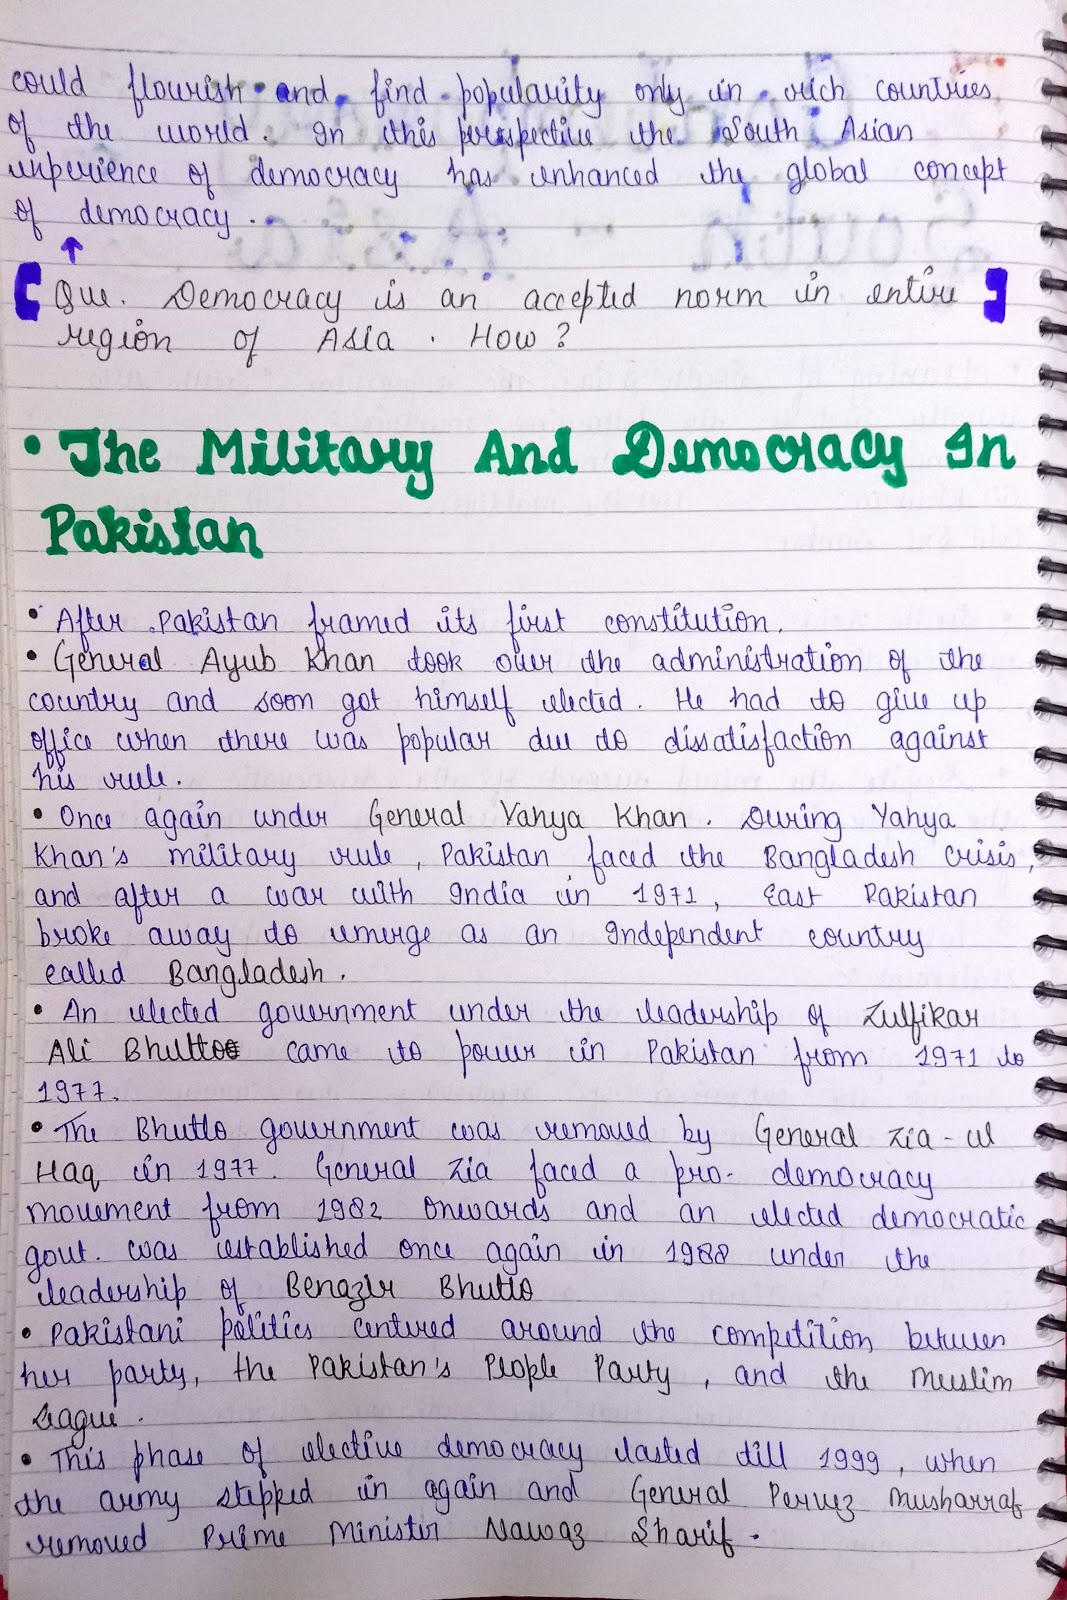 could flourish and find popularity only in rich countries
of the world. In this perspective the South Asian
experience of democracy has enhanced the global concept
of democracy.
Que. Democracy is an accepted norm in entire
region of Asia. How?
• The Military And Democracy In
Pakistan
• After Pakistan framed its first constitution.
• General Ayub Khan took over the administration of the
country and soon got himself elected. He had to give up
office when there was popular due to dissatisfaction against
his rule.
• Once again under General Yahya Khan. During Yahya
Khan's military rule, Pakistan faced the Bangladesh crisis,
and after a war with India in 1971, East Pakistan
broke away to emerge as an Independent country
called Bangladesh.
• An elected government under the leadership of Zulfikar
Ali Bhutto came to power in Pakistan from 1971 to
1977.
• The Bhutto government was removed by General Zia-ul
Haq in 1977. General Zia faced a pro-democracy
movement from 1982 onewards and an elected democratic
govt. was established once again in 1988 under the
leadership of Benazir Bhutto
• Pakistani politics centured around the competition between
her party, the Pakistan's People Party, and the Muslim
League.
• This phase of elective democracy lasted till 1999, when
the army stepped in again and General Pervez Musharraf
removed Prime Minister Nawaz Sharif.